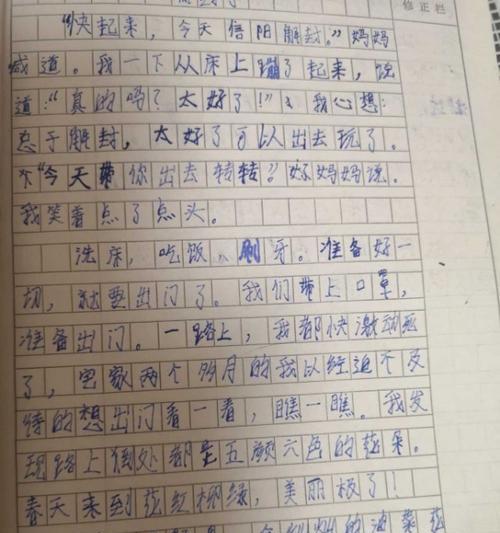 修正栏
“快起来,今天信阳解封。”妈妈
喊道。我一下从床上蹦了起来,说
道:“真的吗?太好了!”我心想:
总于解封,太好了可以出去玩了。
“今天带你出去转转?好妈妈说。
我笑着点了点头。
洗床,吃饭、刷牙。准备好一
切,就要出门了。我们带上口罩,
准备出门。一路上,我都快激动死
了,宅家两个多月的我以经迫不及
待的想出门看一看,瞧一瞧。我发
现路上到处都是五颜六色的花朵。
春天来到花红柳绿,美丽极了!
的油菜花